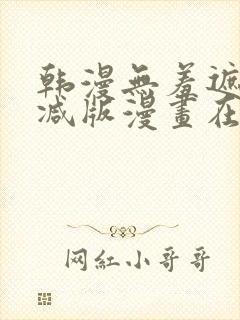 韩漫無羞遮
减版漫畫在
网紅小哥哥